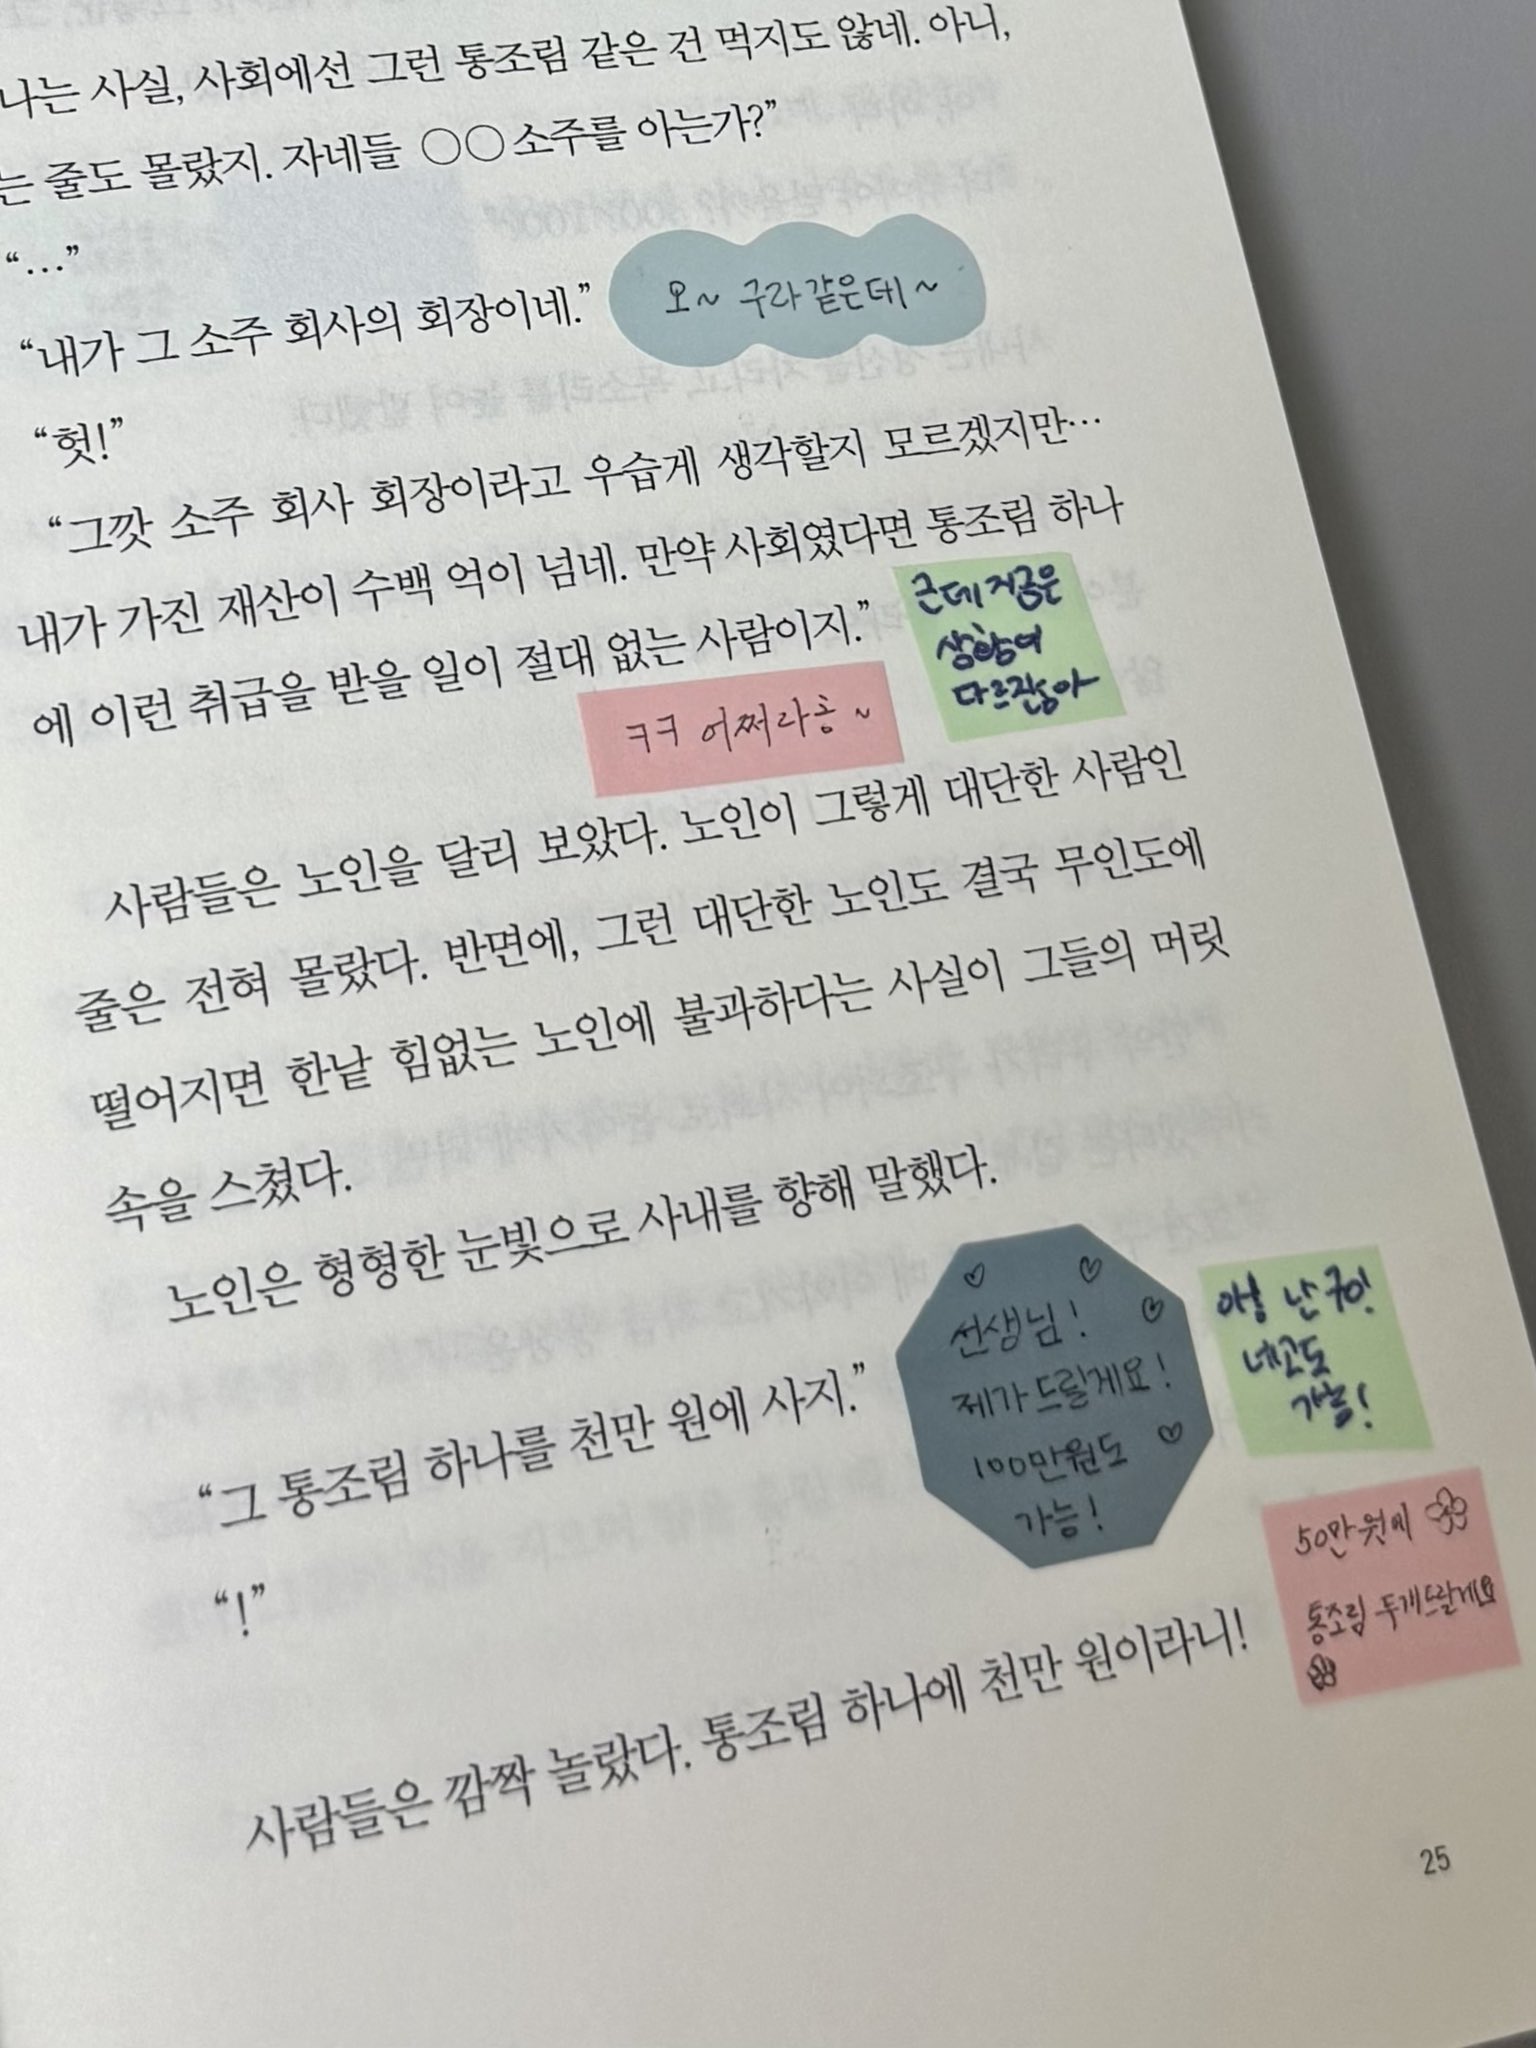 나는 사실, 사회에선 그런 통조림 같은 건 먹지도 않네. 아니,
는 줄도 몰랐지. 자네들 ○○소주를 아는가?”
“…”
“내가 그 소주 회사의 회장이네.”
오~ 구라같은데~
“헛!”
“그깟 소주 회사 회장이라고 우습게 생각할지 모르겠지만…
내가 가진 재산이 수백 억이 넘네. 만약 사회였다면 통조림 하나
에 이런 취급을 받을 일이 절대 없는 사람이지.”
근데 지금은
상황이
다르잖아
ㅋㅋ 어쩌라숑~
사람들은 노인을 달리 보았다. 노인이 그렇게 대단한 사람인
줄은 전혀 몰랐다. 반면에, 그런 대단한 노인도 결국 무인도에
떨어지면 한낱 힘없는 노인에 불과하다는 사실이 그들의 머릿
속을 스쳤다.
노인은 형형한 눈빛으로 사내를 향해 말했다.
“그 통조림 하나를 천만 원에 사지.”
선생님!
제가드릴게요!
100만원도
가능!
난 90!
네고도
가능!
“!”
50만원에
통조림 두개드릴게요
사람들은 깜짝 놀랐다. 통조림 하나에 천만 원이라니!
25